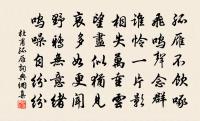 孤雁不飲啄
飛鳴聲念群
誰憐一片影
相失萬重雲
望盡似猶見
哀多如更聞
野鴉無意緒
鳴噪自紛紛
杜甫孤雁詞典網集